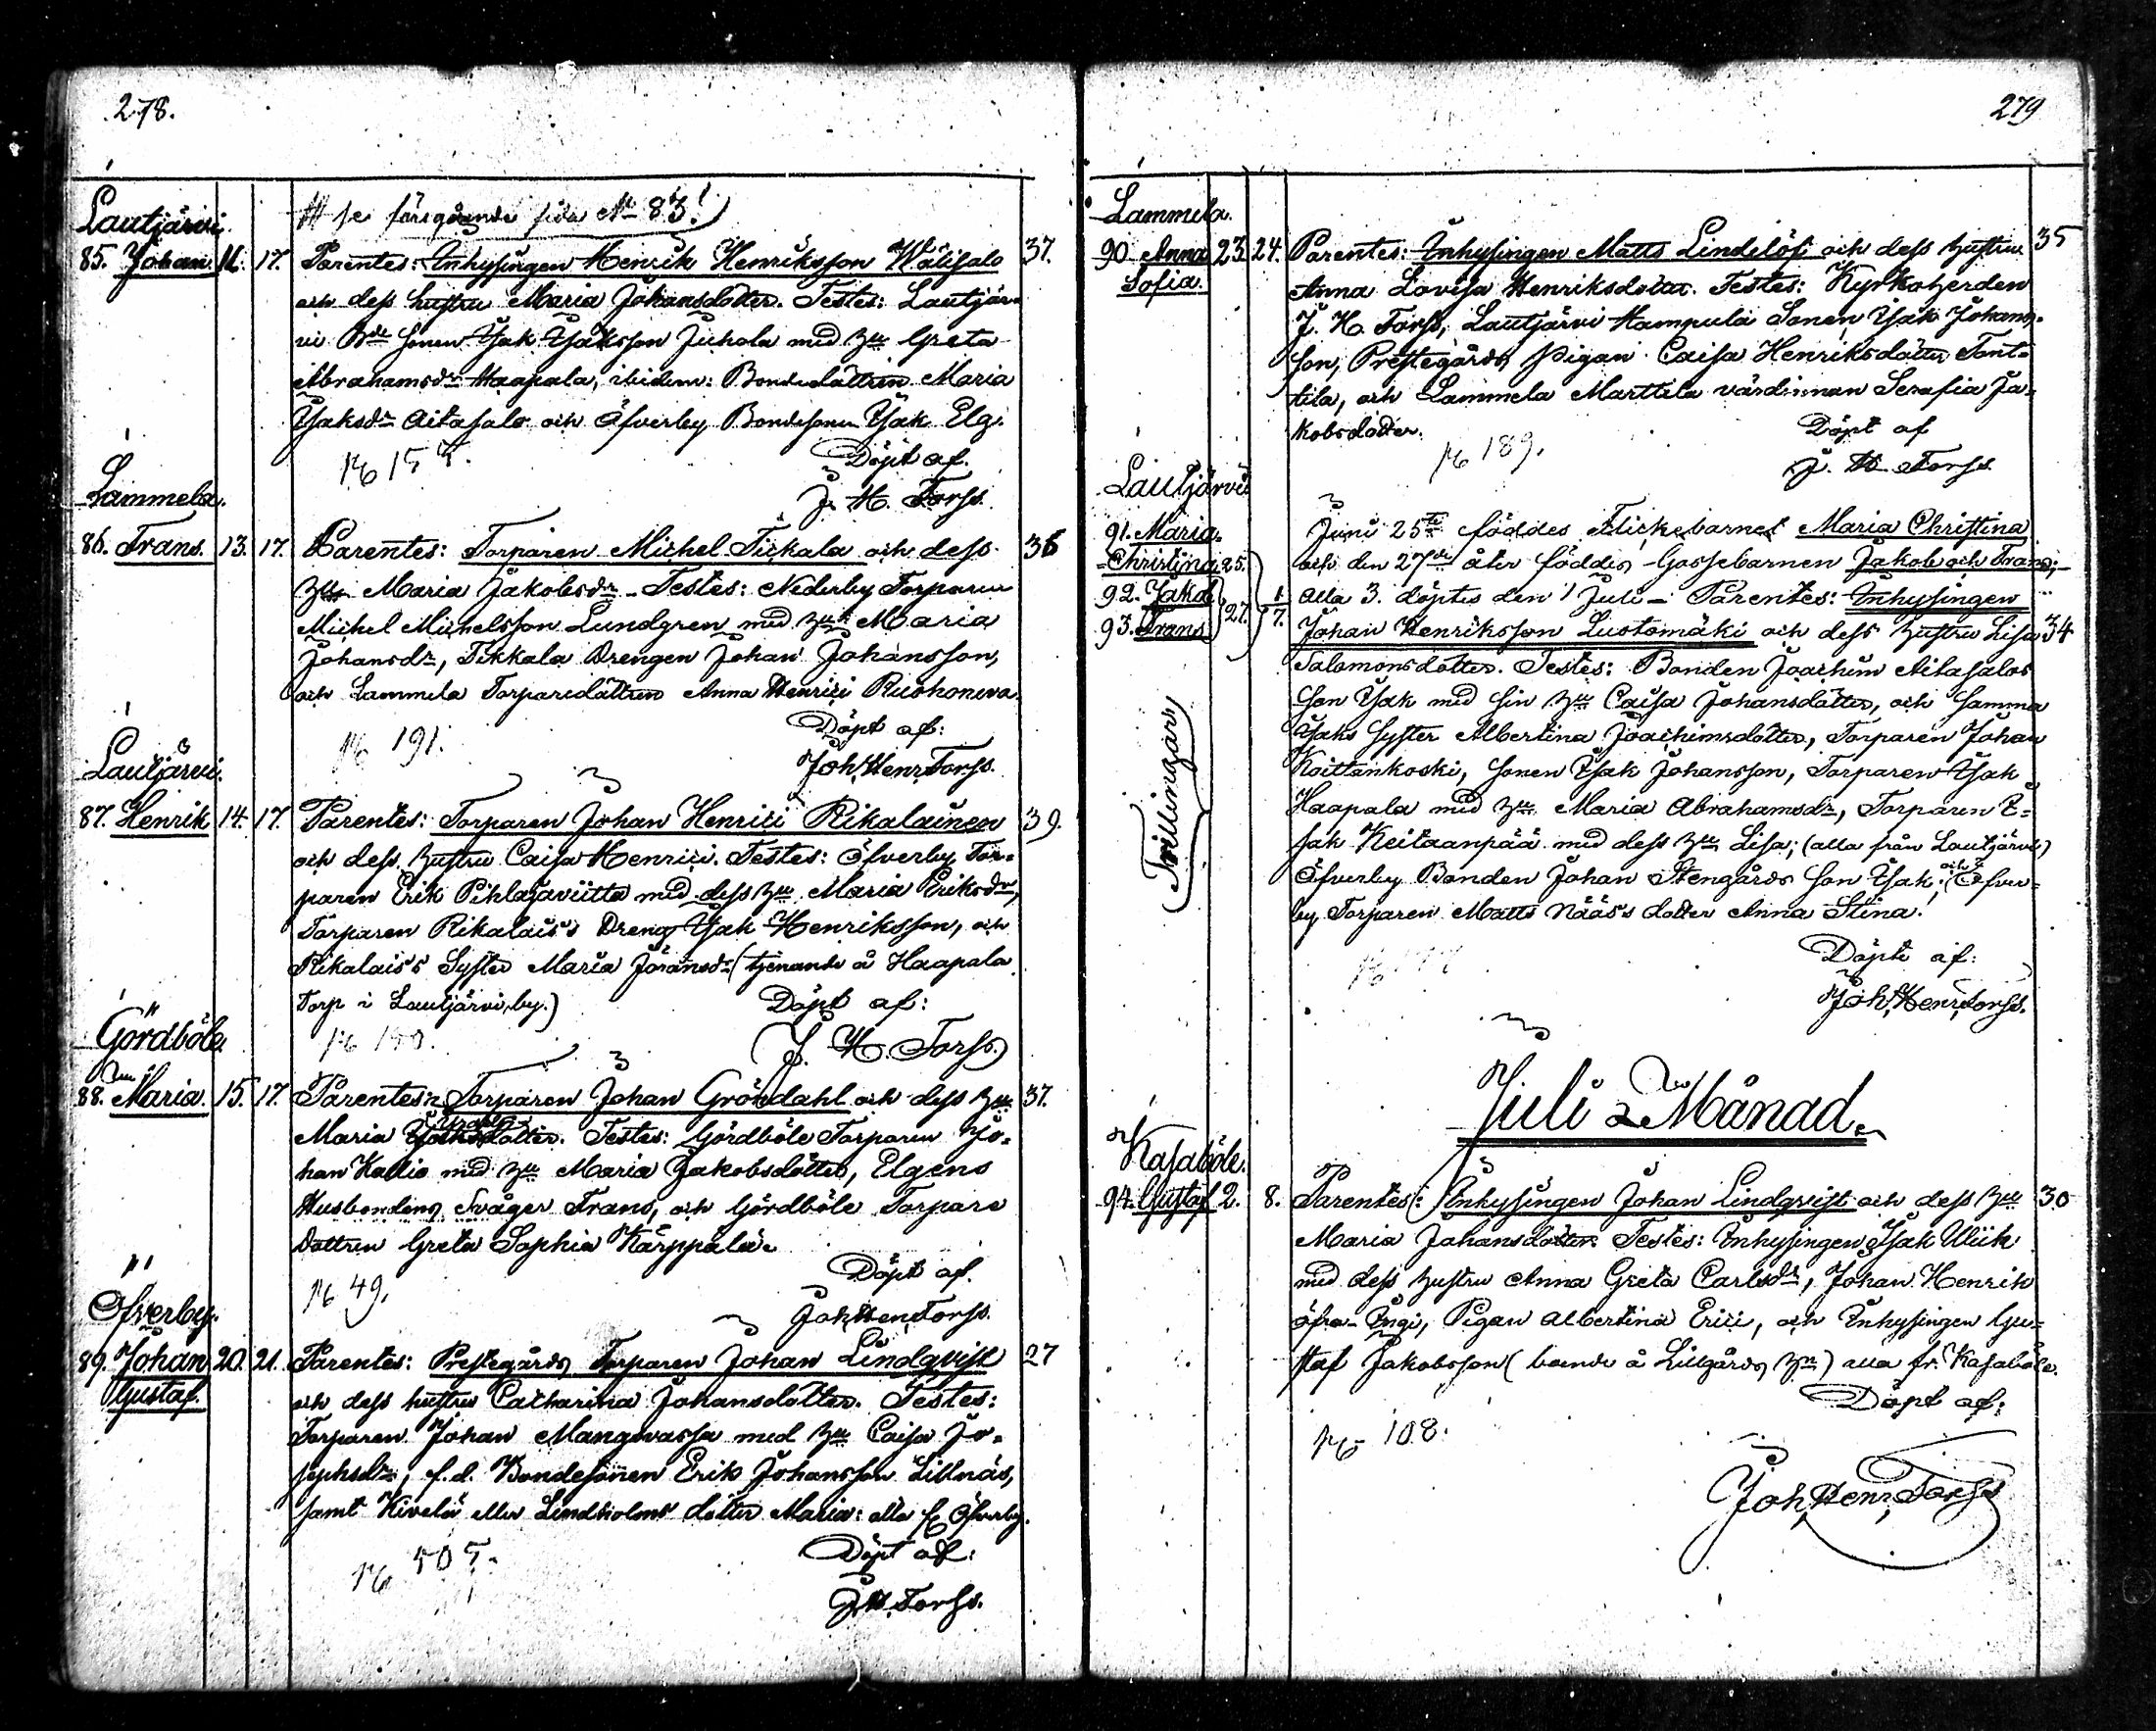 278.
se föregående sida No 83!
Lautjärvi.
85. Johan. 11. 17. Parentes: Inhysingen Henrik Henriksson Wälisalo 37.
och dess hustru Maria Johansdotter. Testes: Lautjär-
vi Bde Sonen Isak Isaksson Juhola med hu Greta
Abrahamsdr Haapala, ibidem: Bondedottren Maria
Isaksdr Aitasalo och Öfverby Bondesonen Isak Elg.
Döpt af.
J. H. Forss.
Lammela.
86. Frans. 13. 17. Parentes: Torparen Michel Tickala och dess 36
hu Maria Jakobsdr. Testes: Nederby Torparen
Michel Michelsson Lundgren med hu Maria
Johansdr, Tikkala Drengen Johan Johansson,
och Lammela Torparedottren Anna Henrici Ruohoneva.
191. Döpt af:
Joh. Henr. Forss.
Lautjärvi.
87. Henrik 14. 17. Parentes: Torparen Johan Henrici Rikalainen 39.
och dess hustru Caisa Henrici. Testes: Öfverby Tor-
paren Erik Pihlajaviitta med dess hu Maria Eriksdr,
Torparen Rikalais's Dreng Isak Henriksson, och
Rikalais's Syster Maria Jöransdr (tjenande å Haapala
Torp i Lautjärvi by.) Döpt af:
J. H. Forss.
Gördböle.
88. Maria. 15. 17. Parentes: Torparen Johan Gröndahl och dess hu 37.
Maria dotter. Testes: Gördböle Torparen Jo-
han Kallio med hu Maria Jakobsdotter, Elgens
Husbondens Svåger Frans, och Gördböle Torpare
Dottren Greta Sophia Kärppälä.
49. Döpt af.
Joh. Hen. Forss.
Öfverby.
89. Johan 20. 21. Parentes: Prestegårds Torparen Johan Lindqvist 27
Gustaf. och dess hustru Catharina Johansdotter. Testes:
Torparen Johan Mangsvassa med hu Caisa Jo-
sephsdr, f.d. Bondesonen Erik Johansson Lillnäs,
samt Kivelä eller Lindholms dotter Maria: alla fr Öfverby.
Döpt af:
J. H. Forss.
279
Lammela.
90. Anna 23. 24. Parentes: Inhysingen Matts Lindelöf och dess hustru 35
Sofia. Anna Lovisa Henriksdotter. Testes: Kyrkoherden
J. H. Forss, Lautjärvi Hampula Sonen Isak Johans-
son, Prestegårds pigan Caisa Henriksdotter Tont-
tila, och Lammela Marttila värdinnan Serafia Ja-
kobsdotter. Döpt af
189. J. H. Forss.
Lautjärvi
91. Maria Juni 25te föddes Flickebarnet Maria Christina
Christina 25. och den 27de åter föddes Gossebarnen Jakob och Frans;
92. Jakob 27. 1/7. alla 3. döptes den 1 Juli. Parentes: Inhysingen
93. Frans Johan Henriksson Lustomäki och dess hustru Lisa 34
Salomonsdotter. Testes: Bonden Joachim Aitasalos
Son Isak med sin hu Caisa Johansdotter, och samma
Isaks Syster Albertina Joachimsdotter, Torparen Johan
Koittankoski, Sonen Isak Johansson, Torparen Isak
Haapala med hu Maria Abrahamsdr, Torparen I-
sak Keitaanpää med dess hu Lisa; (alla från Lautjärvi)
Öfverby Bonden Johan Stengårds Son Isak; och Öfver-
by Torparen Matts Nääs's dotter Anna Stina.
Trillingar
Döpte af:
Joh. Henr. Forss.
Juli Månad.
Kasaböle.
94. Gustaf 2. 8. Parentes: Inhysingen Johan Lindqvist och dess hu 30
Maria Johansdotter. Testes: Inhysingen Isak Wiik
med dess hustru Anna Greta Carlsdr, Johan Henrik
öfra-Ingi, Pigan Albertina Erici, och Inhysingen Gus-
taf Jakobsson (boende å Lillgårds hn) alla fr. Kasaböle.
Döpt af:
108.
Joh. Henr. Forss